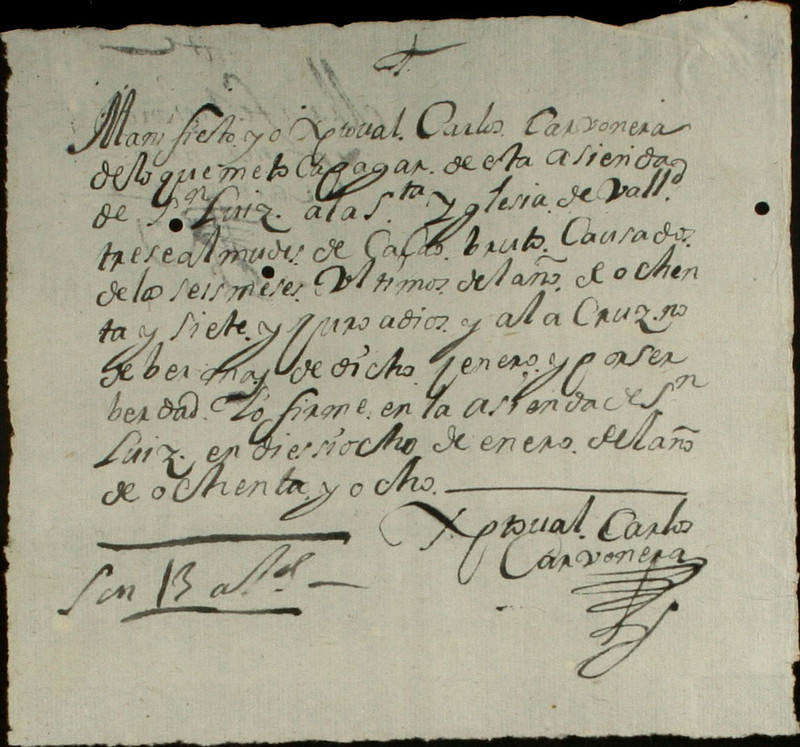 Manifiesto yo Xptoual. Carlos. Carvonera
de lo que me toCa pagar. de esta asiendad
de Sn Luiz. a la Sta Yglesia. de Valld.
trese almudes de CaCao. bruto. Causados.
de los seis meses. Vltimos. del año. de ochen
ta y siete. y juro a dios. y a la Cruz. no
deber mas de dicho. jenero. y por ser
berdad. lo firme. en la asienda de Sn
Luiz. en diessiocho de enero. del año
de ochenta. y ocho.
Xptoual. Carlos
Carvonera
Son 13 alds